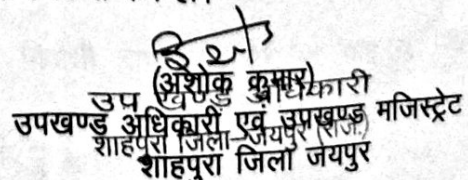 (अशोक कुमार)
उप खण्ड अधिकारी
उपखण्ड अधिकारी एवं उपखण्ड मजिस्ट्रेट
शाहपुरा जिला-जयपुर (राज.)
शाहपुरा जिला जयपुर